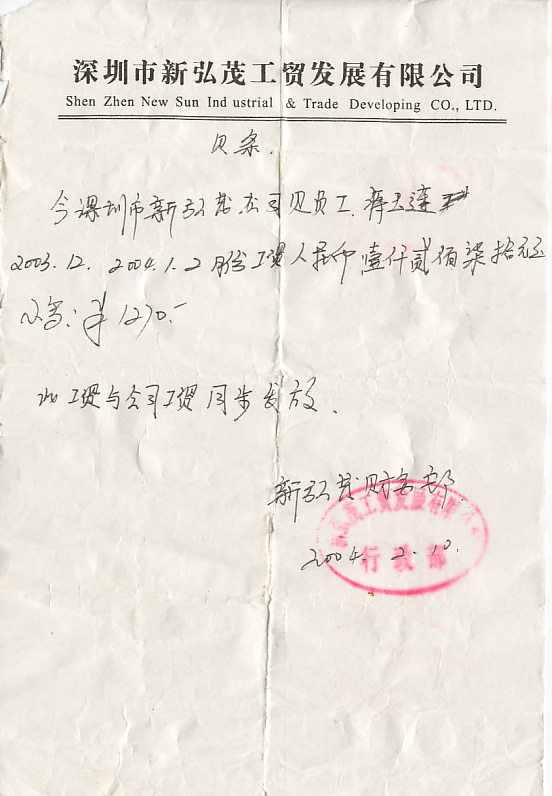 深圳市新弘茂工贸发展有限公司
Shen Zhen New Sun Ind ustrial & Trade Developing CO., LTD.
贝条.
今深圳市新弘茂公司贝员工.蒋玉莲
2003.12. 2004.1.2月份工资人民币壹仟贰佰柒拾元正
小写:¥1270.-
此工资与公司工资同步发放.
新弘茂财务部
弘茂工贸发展有限
2004.2.10.
行政部